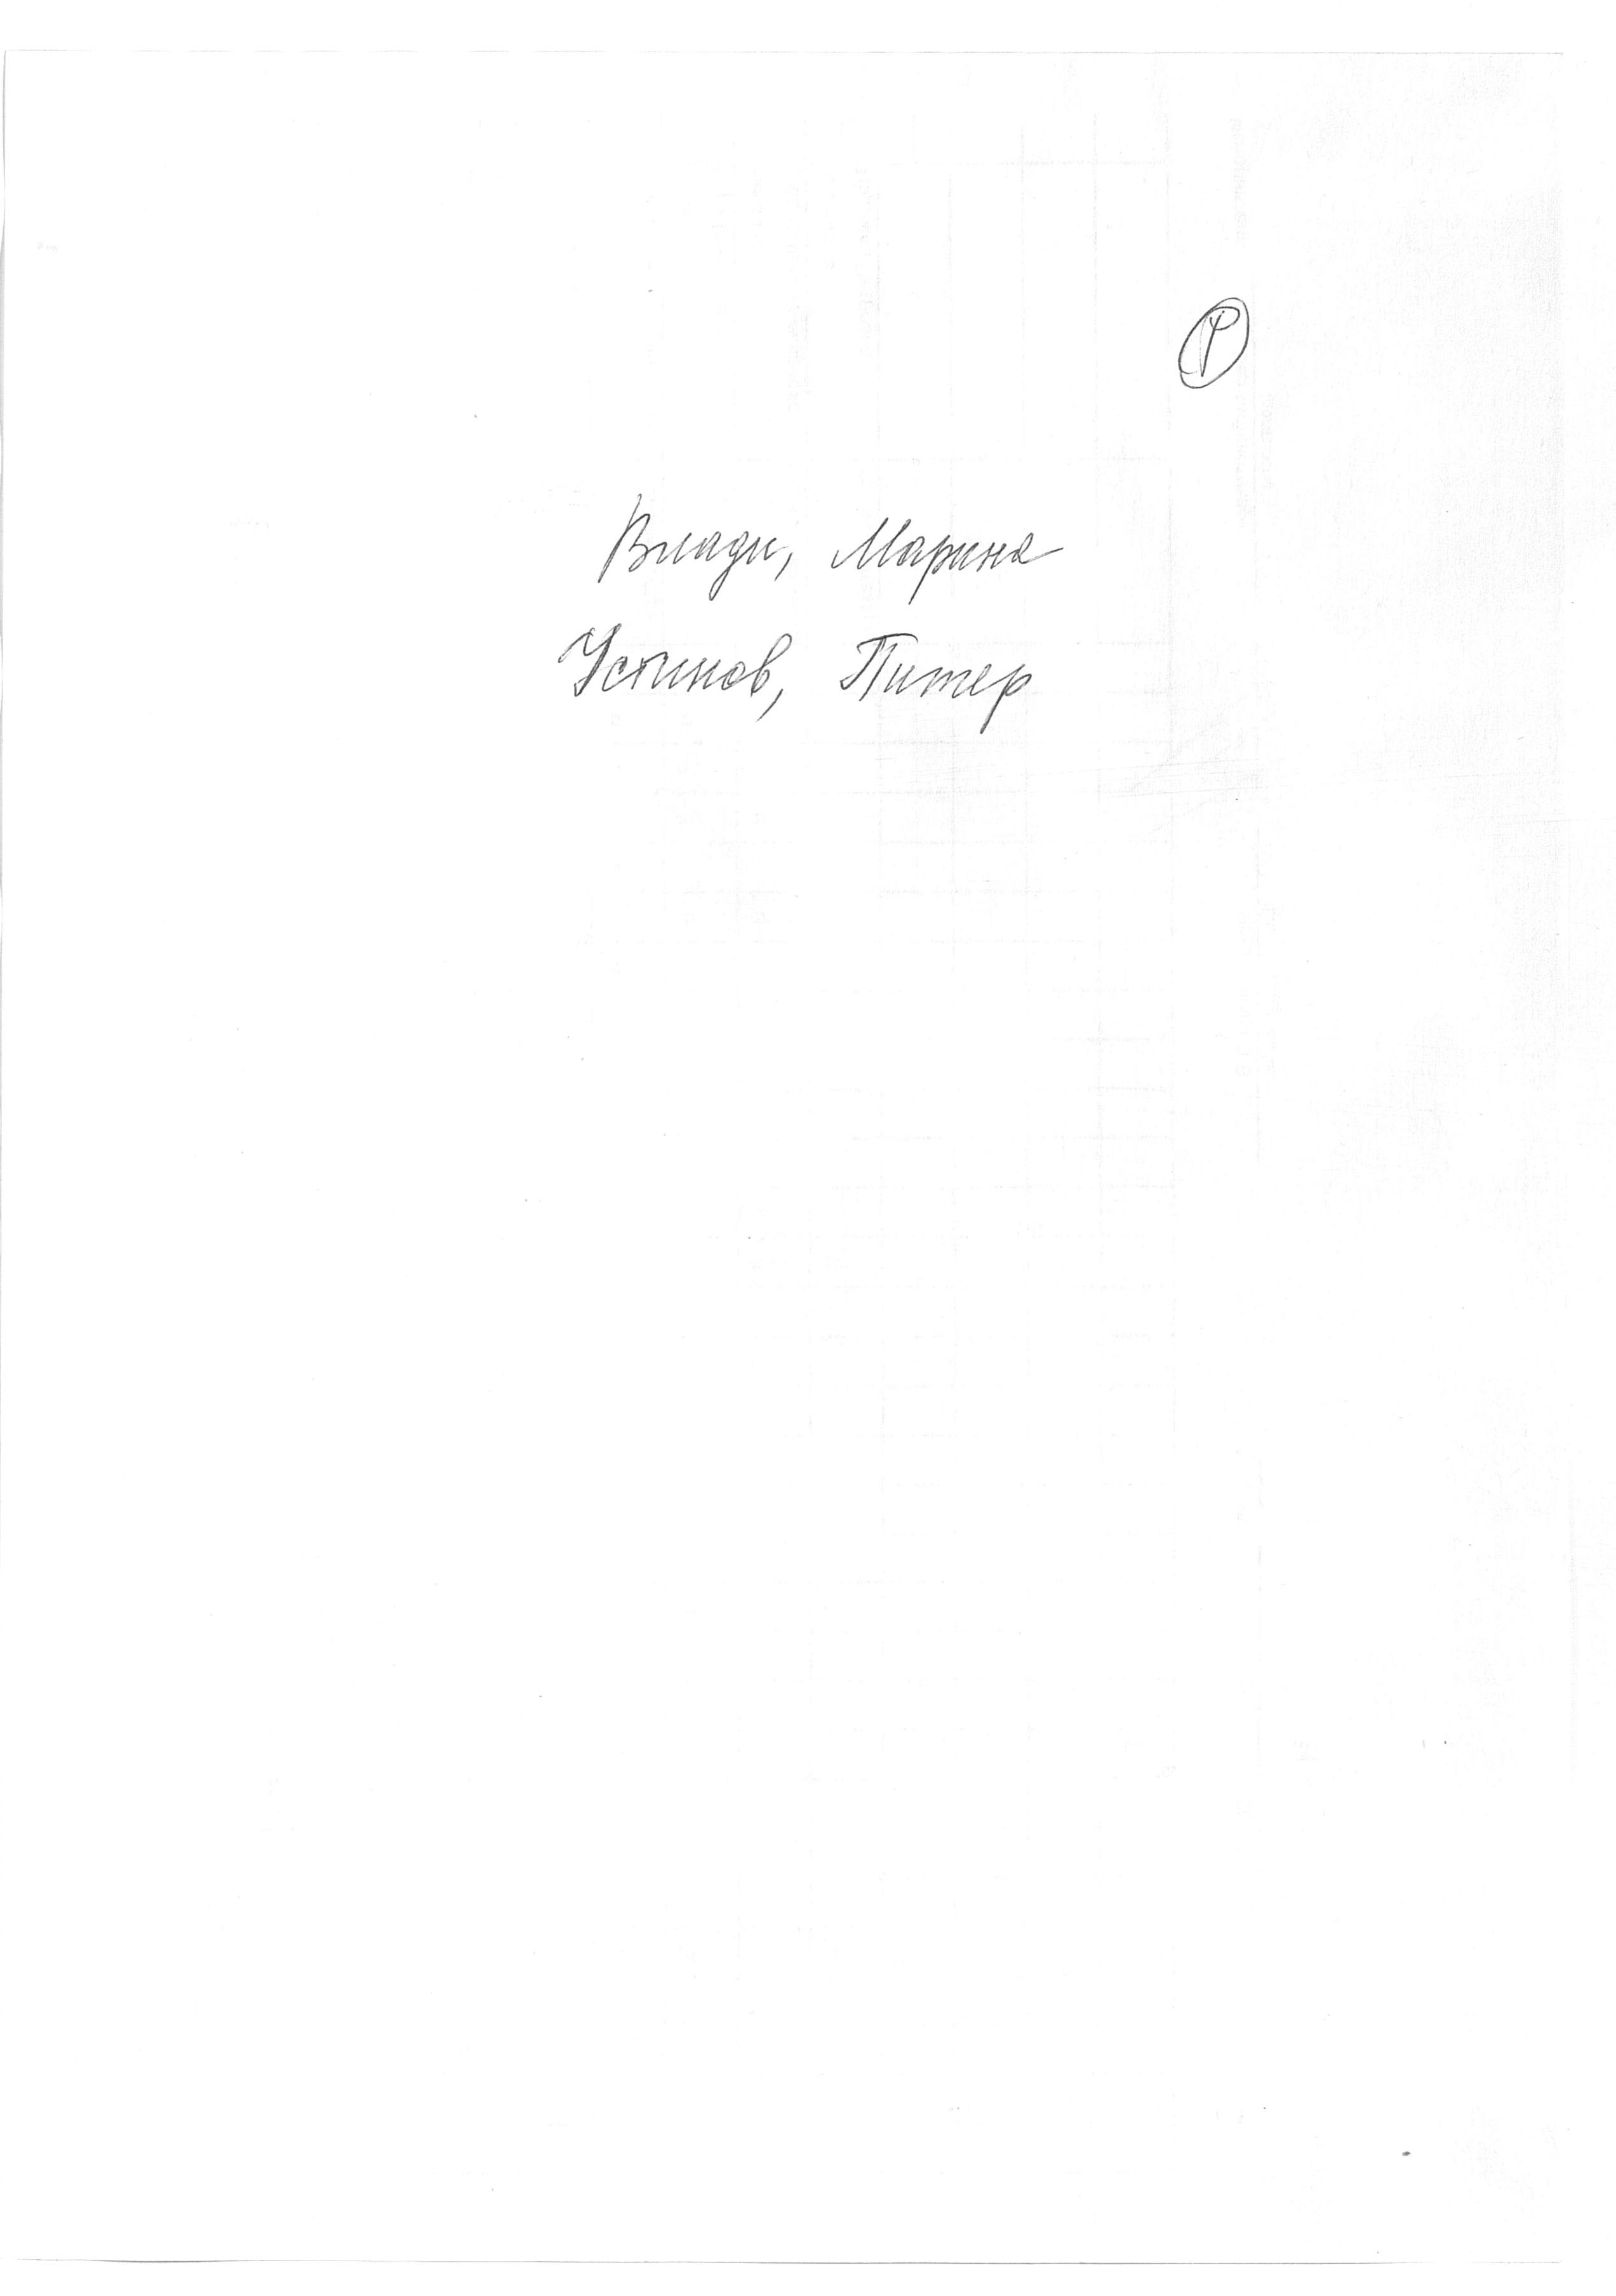 Р
Влади, Марина
Устинов, Питер